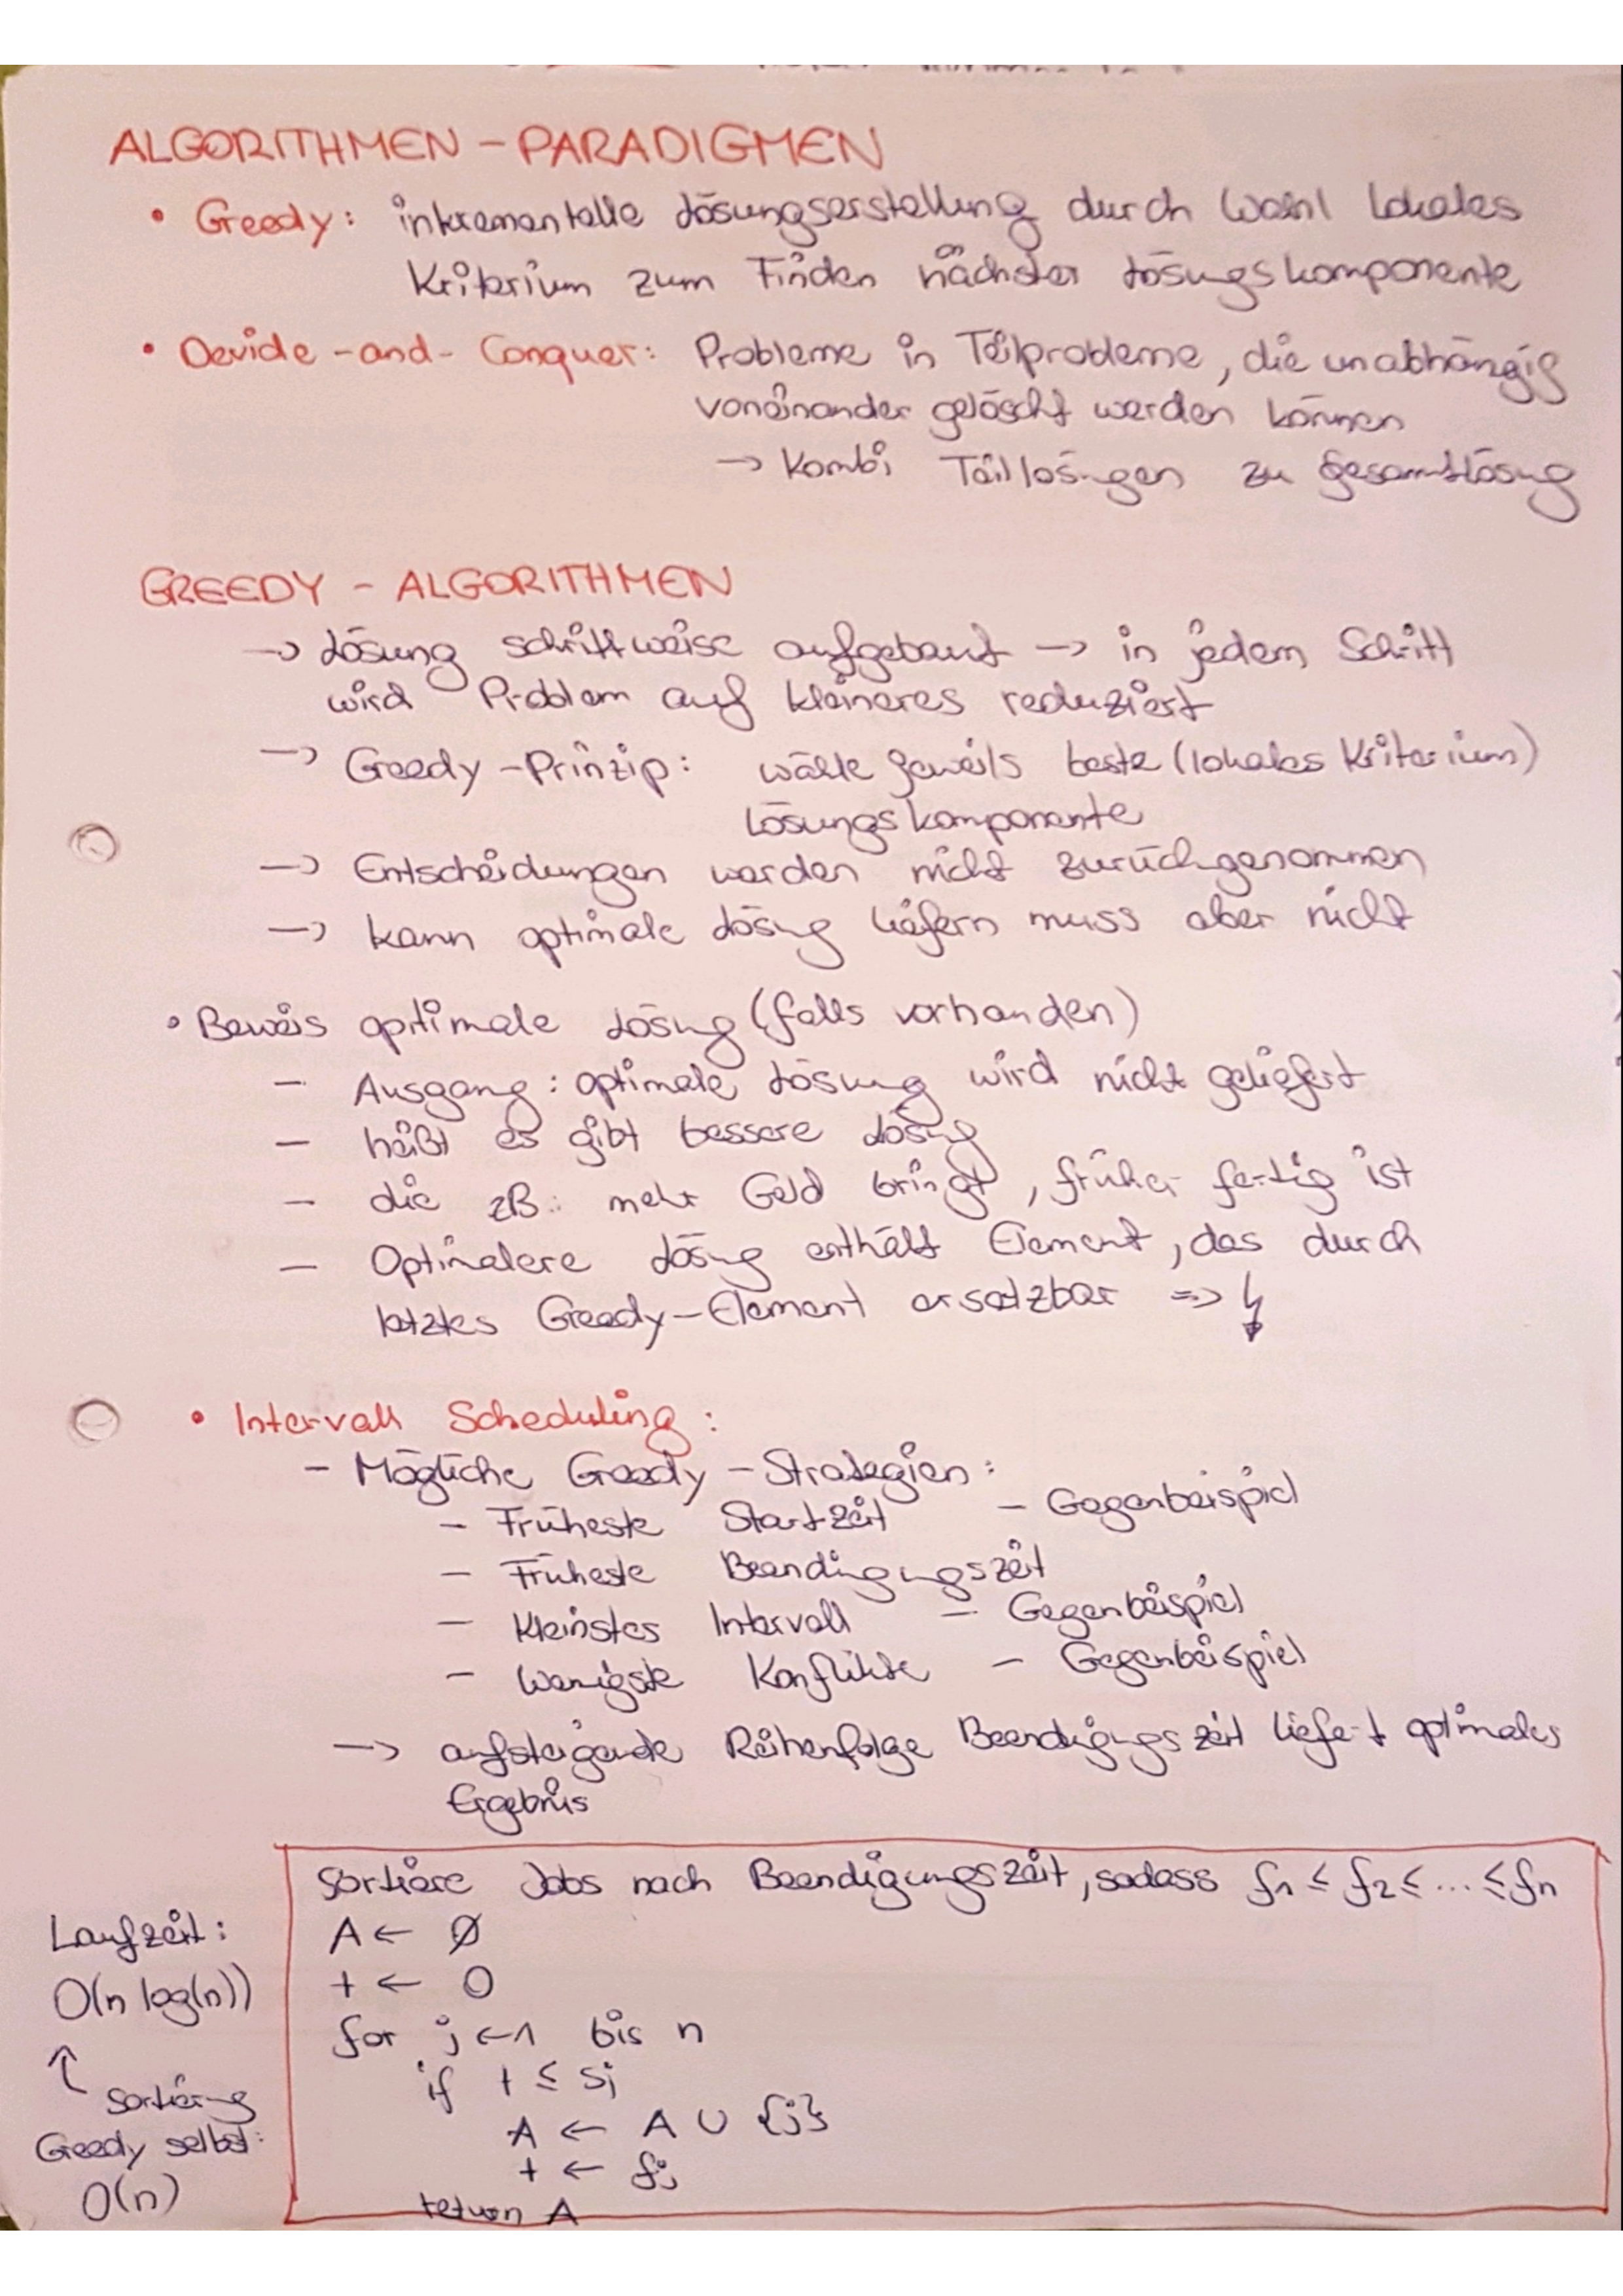 ALGORITHMEN - PARADIGMEN
• Greedy: inkrementelle Lösungserstellung durch Wahl lokales
Kriterium zum Finden nächster Lösungskomponente
• Devide-and-Conquer: Probleme in Teilprobleme, die unabhängig
voneinander gelöscht werden können
→ Kombi Teillösungen zu Gesamtlösung
GREEDY - ALGORITHMEN
→ Lösung schrittweise aufgebaut → in jedem Schritt
wird Problem auf kleineres reduziert
→ Greedy-Prinzip: wähle jeweils beste (lokales Kriterium)
Lösungskomponente
→ Entscheidungen werden nicht zurückgenommen
→ kann optimale Lösung liefern muss aber nicht
• Beweis optimale Lösung (falls vorhanden)
- Ausgang: optimale Lösung wird nicht geliefert
- heißt es gibt bessere Lösung
- die zB.: mehr Geld bringt, früher fertig ist
- Optimalere Lösung enthält Element, das durch
letztes Greedy-Element ersetzbar => ↯
• Intervall Scheduling:
- Mögliche Greedy-Strategien:
- Früheste Startzeit - Gegenbeispiel
- Früheste Beendigungszeit
- Kleinstes Intervall - Gegenbeispiel
- Wenigste Konflikte - Gegenbeispiel
→ aufsteigende Reihenfolge Beendigungszeit liefert optimales
Ergebnis
Sortiere Jobs nach Beendigungszeit, sodass f1 ≤ f2 ≤ ... ≤ fn
A ← ∅
t ← 0
for j ← 1 bis n
if t ≤ sj
A ← A ∪ {j}
t ← fj
return A
Laufzeit:
O(n log(n))
↑ Sortierung
Greedy selbst:
O(n)